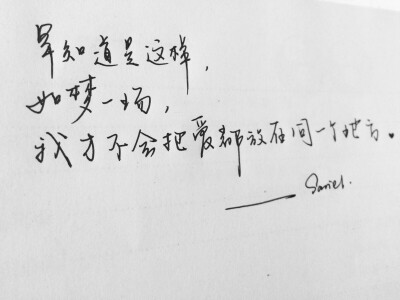 早知道是这样,
如梦一场,
我才不会把爱都放在同一个地方。
—— Daniel.